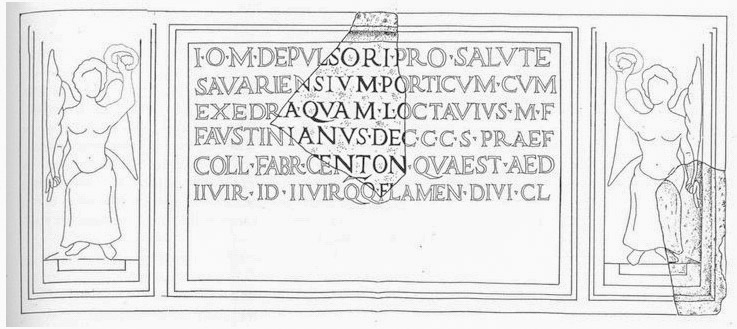 I·O·M·DEPVLSORI·PRO·SALVTE
SAVARIENSIVM·PORTICVM·CVM
EXEDRA·QVAM·L·OCTAVIVS·M·F
FAVSTINIANVS·DEC·C·C·S·PRAEF
COLL·FABR·CENTON·QVAEST·AED
IIVIR·ID·IIVIRQQ·FLAMEN·DIVI·CL